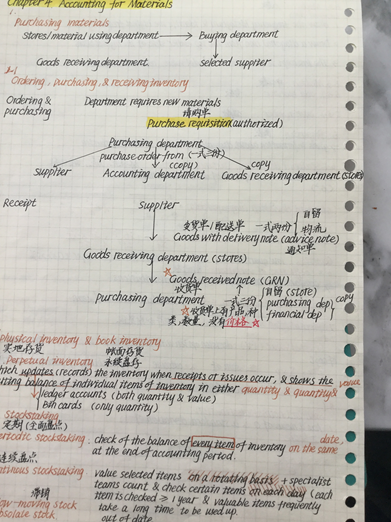 Chapter 4 Accounting for Materials
Purchasing materials
stores/material using department → Buying department
Goods receiving department selected supplier
Ordering, purchasing, & receiving inventory
Ordering & Department requires new materials
purchasing 请购单
Purchase requisition (authorized)
Purchasing department
purchase order from (一式三份)
(copy) copy
supplier Accounting department Goods receiving department (stores)
Receipt Supplier
发货单/配送单 一式两份 自留
Goods with delivery note (advice note) 物流
通知单
Goods receiving department (stores)
☆ Goods received note (GRN)
收货单
Purchasing department 一式三份 自留 (store)
purchasing dep copy
financial dep
☆ 收货单上有产品,种
类,数量,没有价格 ☆
physical inventory & book inventory
实地存货 帐面存货
Perpetual inventory 永续盘存
which updates (records) the inventory when receipts or issues occur, & shows the value
balance of individual items of inventory in either quantity & quantity &
ledger accounts (both quantity & value)
Bin cards (only quantity)
Stocktaking
定期 (全面盘点)
Periodic stocktaking : check of the balance of every item of inventory on the same date,
at the end of accounting period.
连续盘点
Continuous stocktaking value selected items on a rotating basis + specialist
teams count & check certain items on each day (each
滞销 item is checked ≥ 1 year & valuable items frequently
slow-moving stock take a long time to be used up.
obsolete stock out of date